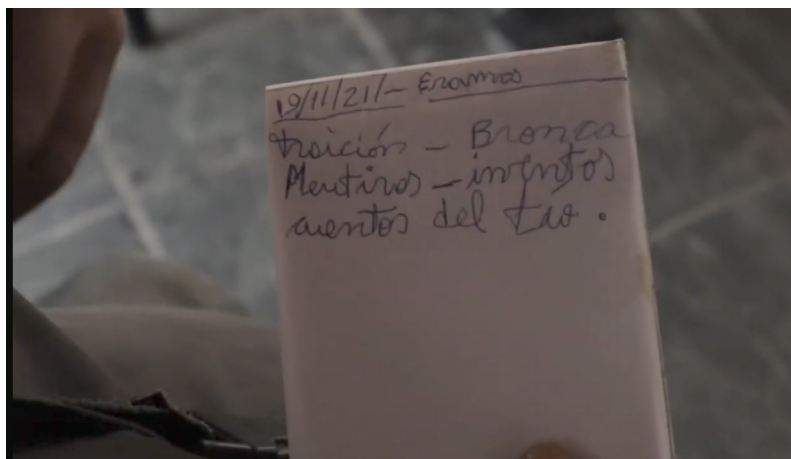 19/11/21/- Eramos
traición - Bronca
Mentiras - inventos
cuentos del tío.